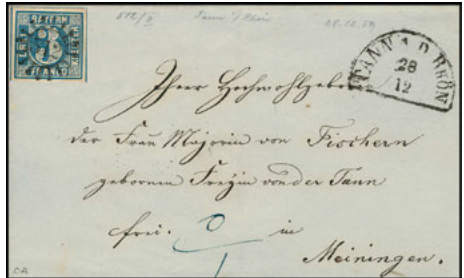 BAYERN
FRANCO
TANN A.D. RHÖN
28
12
Ihrer Hochwohlgeboren
der Frau Majorin von Fischern
gebornen Freyin von der Tann
frei. in
Meiningen.